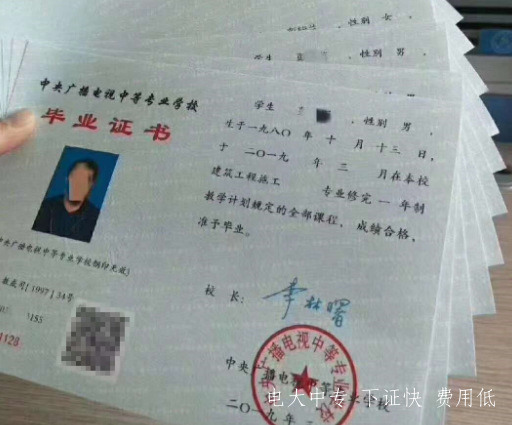 ，性别 女，
学生 ，性别 男，
中央广播电视中等专业学校
毕业证书
学生 ，性别 男，
生于一九八〇年 十 月 十三 日，
于 二〇一九 年 三 月在本校
建筑工程施工 专业修完 一 年制
教学计划规定的全部课程，成绩合格，
准予毕业。
中央广播电视中等专业学校钢印无效)
[1997]34号
155
1128
校 长：
李林曙
中央广播电视中等专业学校
二〇一九年
电大中专 下证快 费用低